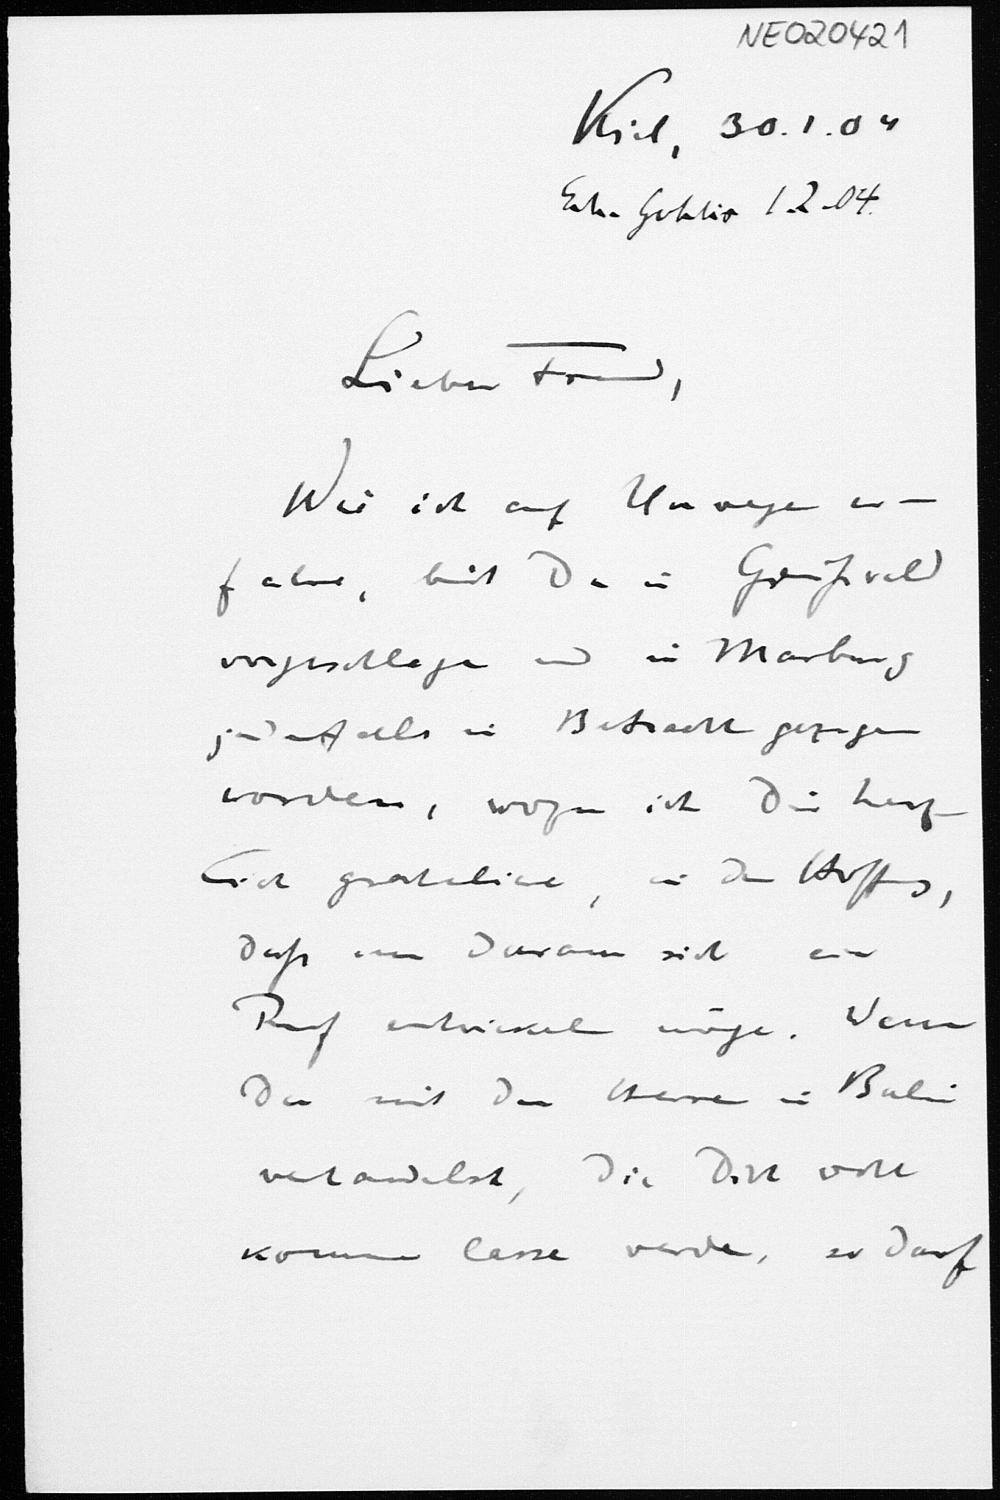 NE020421
Kiel, 30.1.04
Gohlis 1.2.04.
Lieber Freund,
Wie ich auf Umwegen er-
fahre, bist Du in Greifswald
vorgeschlagen und in Marburg
jedenfalls in Betracht gezogen
worden, wozu ich Dir herz-
lich gratuliere, in der Hoffnung,
daß nun daraus sich ein
Ruf entwickeln möge. Wenn
Du mit den Herren in Berlin
verhandelst, die Dich wohl
kommen lassen werden, so darf